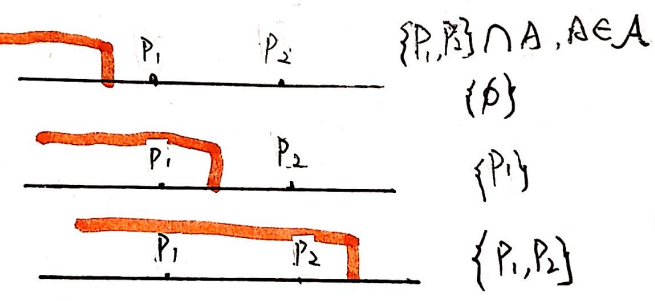 P₁ P₂ {P₁,P₂}∩A, A∈𝒜
{∅}
P₁ P₂ {P₁}
P₁ P₂ {P₁,P₂}